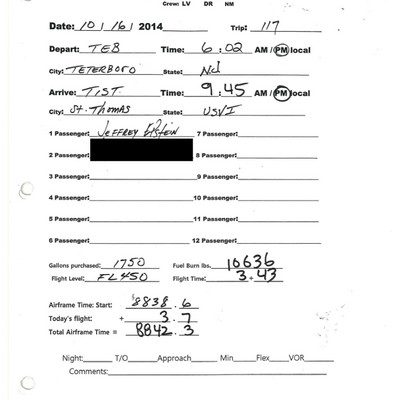 Crew: LV DR NM
Date: 10 / 16 / 2014 Trip: 117
Depart: TEB Time: 6:02 AM / PM local
City: TETERBORO State: NJ
Arrive: TIST Time: 9:45 AM / PM local
City: St. Thomas State: USVI
1 Passenger: Jeffrey Epstein 7 Passenger:
2 Passenger: 8 Passenger:
3 Passenger: 9 Passenger:
4 Passenger: 10 Passenger:
5 Passenger: 11 Passenger:
6 Passenger: 12 Passenger:
Gallons purchased: 1750 Fuel Burn lbs. 10636
Flight Level: FL450 Flight Time: 3+43
Airframe Time: Start: 8838.6
Today's flight: + 3.7
Total Airframe Time = 8842.3
Night: T/O Approach Min Flex VOR
Comments: